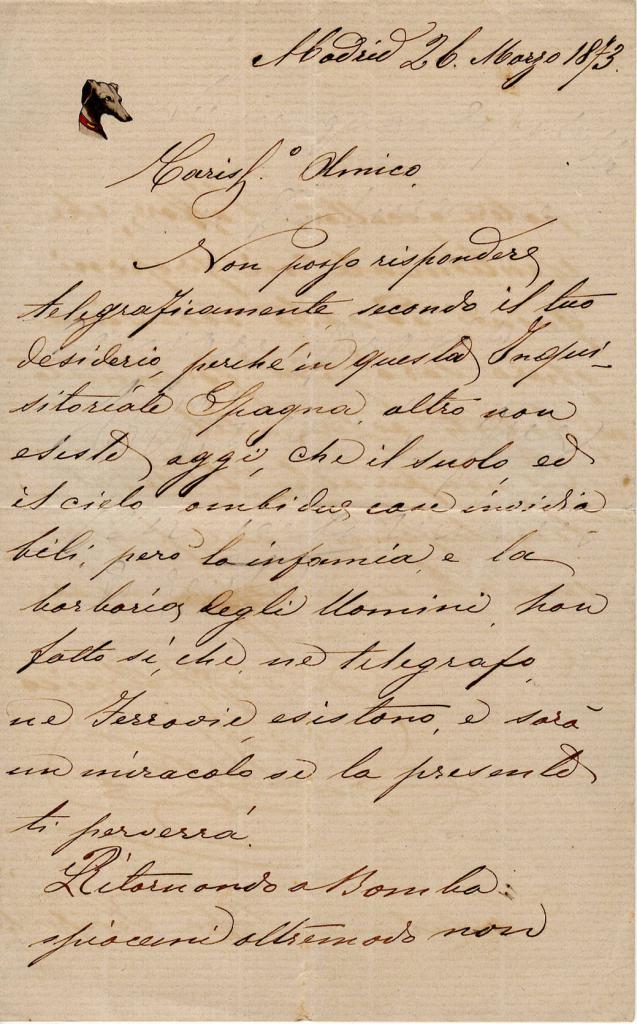 Madrid 26. Marzo 1873.
Cariss.º Amico
Non posso rispondere
telegraficamente, secondo il tuo
desiderio, perché in questa Inqui-
sitoriale Spagna, altro non
esiste, oggi, che il suolo, ed
il cielo ambidue cose invidia
bili, però la infamia, e la
barbaria degli Uomini, han
fatto sì, che, ne telegrafo,
ne Ferrovie, esistono, e sarà
un miracolo se la presente
ti perverrà.
Ritornando a Bomba:
spiacemi oltremodo non